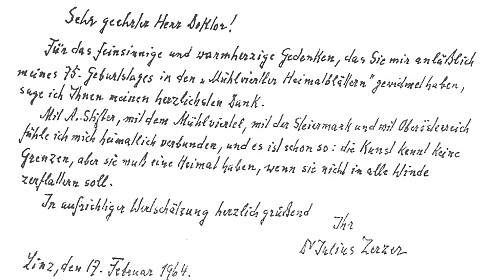 Sehr geehrter Herr Doktor!
Für das feinsinnige und warmherzige Gedenken, das Sie mir anläßlich
meines 75. Geburtstages in den „Mühlviertler Heimatblättern" gewidmet haben,
sage ich Ihnen meinen herzlichsten Dank.
Mit A. Stifter, mit dem Mühlviertel, mit der Steiermark und mit Oberösterreich
fühle ich mich heimatlich verbunden, und es ist schon so: die Kunst kennt keine
Grenzen, aber sie muß eine Heimat haben, wenn sie nicht in alle Winde
zerflattern soll.
In aufrichtiger Wertschätzung herzlich grüßend
Ihr
Dr Julius Zerzer
Linz, den 17. Februar 1964.